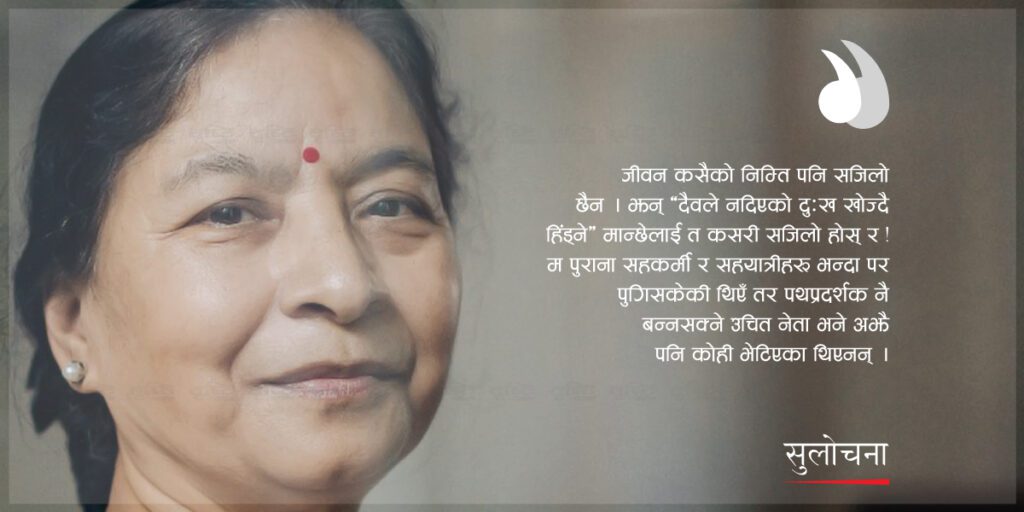 जीवन कसैको निम्ति पनि सजिलो
छैन । झन् “दैवले नदिएको दुःख खोज्दै
हिंड्ने” मान्छेलाई त कसरी सजिलो होस् र !
म पुराना सहकर्मी र सहयात्रीहरु भन्दा पर
पुगिसकेकी थिएँ तर पथप्रदर्शक नै
बन्नसक्ने उचित नेता भने अझै
पनि कोही भेटिएका थिएनन् ।
सुलोचना